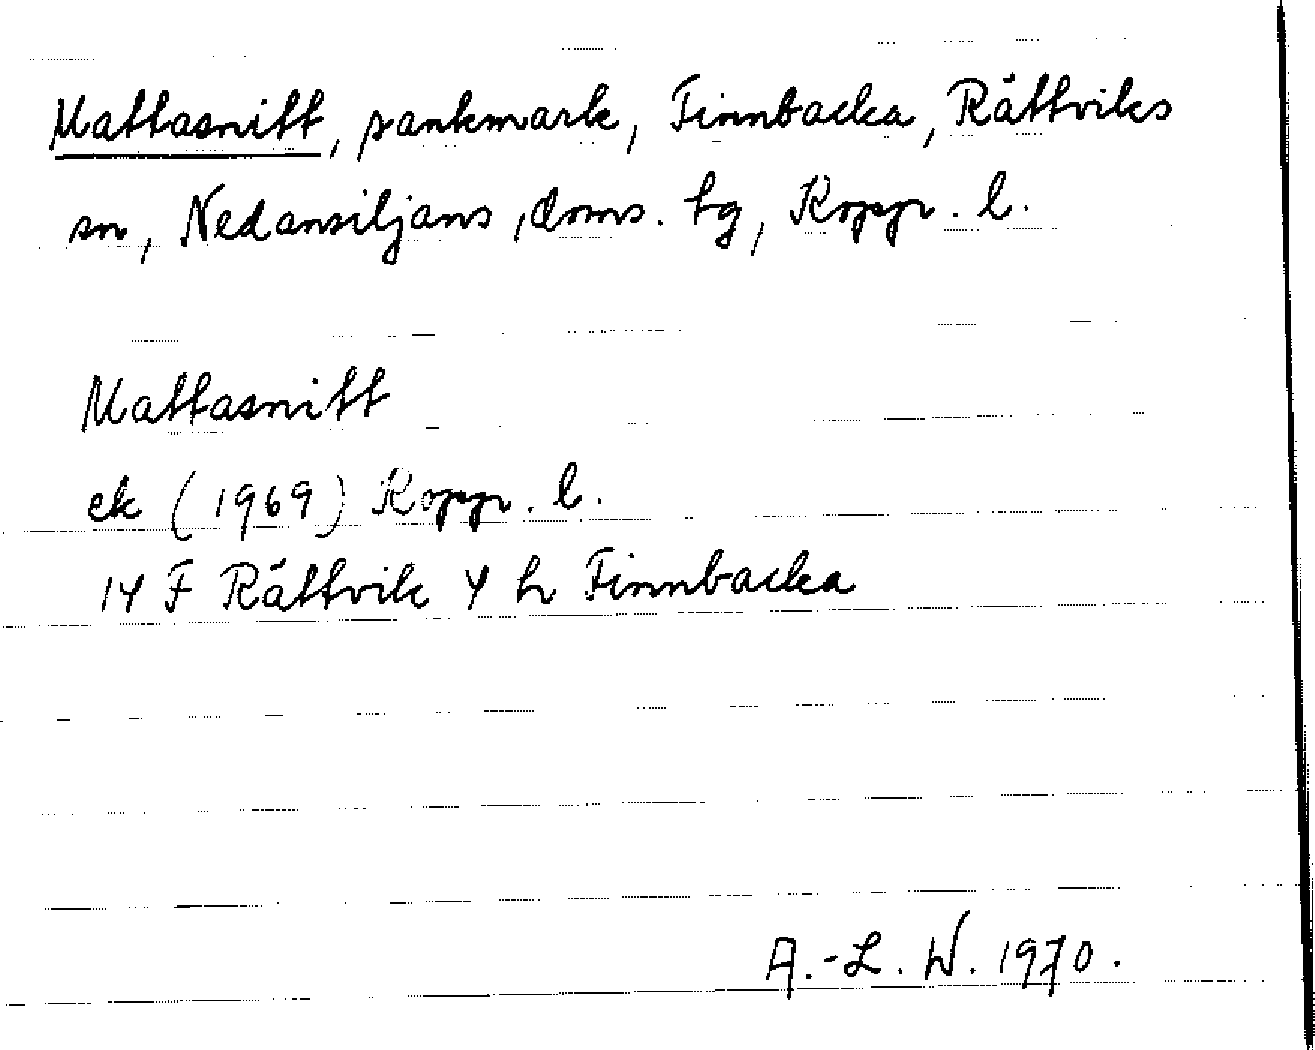 Mattasnitt, sankmark, Finnbacka, Rättviks
sn, Nedansiljans, doms. tg, Kopp. l.
Mattasnitt
ek (1969) Kopp. l.
14 F Rättvik 4 h Finnbacka
A.-L. W. 1970.